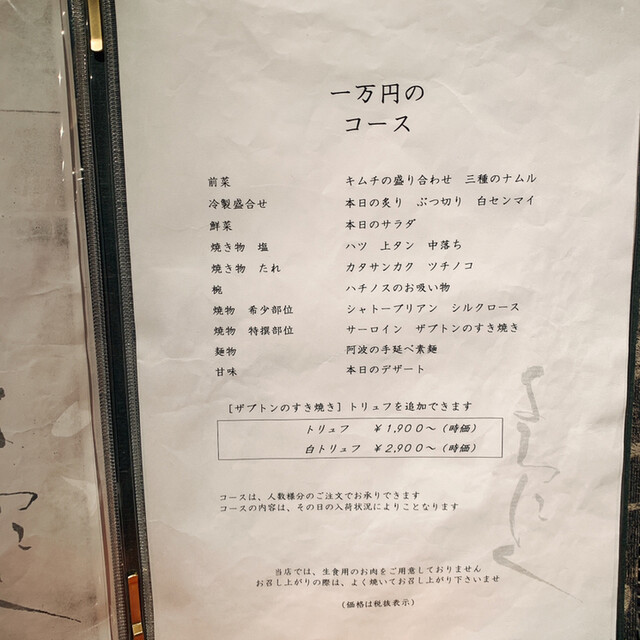 一万円の
コース
前菜 キムチの盛り合わせ 三種のナムル
冷製盛合せ 本日の炙り ぶつ切り 白センマイ
鮮菜 本日のサラダ
焼き物 塩 ハツ 上タン 中落ち
焼き物 たれ カタサンカク ツチノコ
椀 ハチノスのお吸い物
焼物 希少部位 シャトーブリアン シルクロース
焼物 特撰部位 サーロイン ザブトンのすき焼き
麺物 阿波の手延べ素麺
甘味 本日のデザート
[ザブトンのすき焼き]トリュフを追加できます
トリュフ ¥1,900〜(時価)
白トリュフ ¥2,900〜(時価)
コースは、人数様分のご注文でお承りできます
コースの内容は、その日の入荷状況によりことなります
よろにく
当店では、生食用のお肉をご用意しておりません
お召し上がりの際は、よく焼いてお召し上がり下さいませ
(価格は税抜表示)